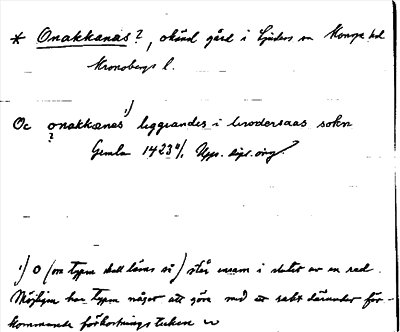 * Onakkanäs?, okänd gård i Ljuders sn Konga hd
Kronobergs l.
Oc onakkænæs ¹) liggiandes i liurodersaas sokn
?
Gemla 1423 Upps. dipl. orig.
¹) O (om typen skall läsas så) står ensam i slutet av en rad.
Möjligen har typen något att göra med ett rakt därunder före-
kommande förkortningstecken